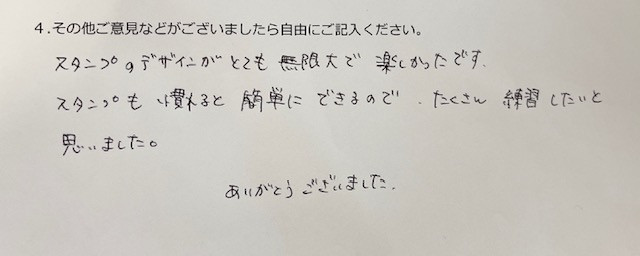 4.その他ご意見などがございましたら自由にご記入ください。
スタンプのデザインがとても無限大で楽しかったです.
スタンプも慣れると簡単にできるので、たくさん練習したいと
思いました。
ありがとうございました.